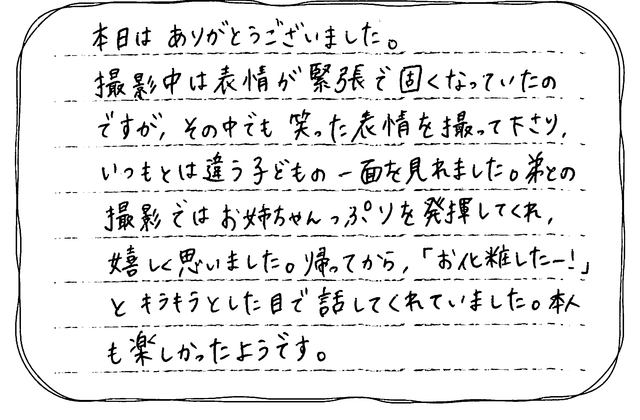 本日は ありがとうございました。
撮影中は表情が緊張で固くなっていたの
ですが、その中でも 笑った表情を撮って下さり、
いつもとは違う子どもの一面を見れました。弟との
撮影ではお姉ちゃんっぷりを発揮してくれ、
嬉しく思いました。帰ってから、「お化粧したー!」
と キラキラとした目で話してくれていました。本人
も楽しかったようです。